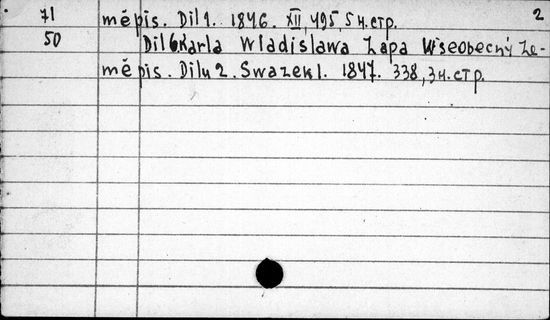 71 měpis. Dil 1. 1846. XII, 495, 5 н.стр. 2
50 Dil 6 Karla Wladislawa Zapa Wšeobecný Ze-
měpis. Dilu 2. Swazek 1. 1847. 338, 3 н.стр.